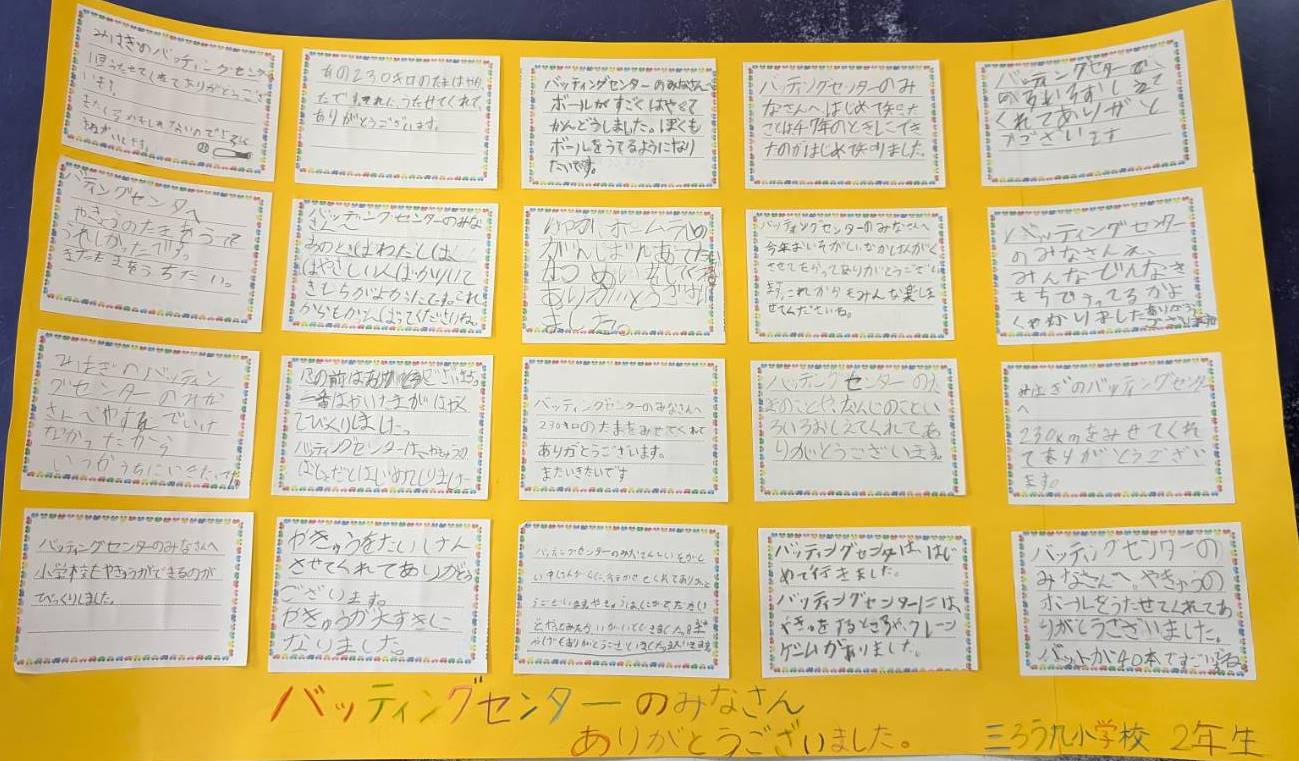 みはぎのバッティングセンター
ほうたせてくれてありがとうござ
います。
またくるかもしれないのでよろしく
おねがいします。
あの230キロの玉ははやかっ
たです。きれいにうたせてくれて、
ありがとうございます。
バッティングセンターのみなさんへ
ボールがすごくはやくて
かんどうしました。ぼくも
ボールをうてるようになり
たいです。
バッティングセンターのみ
なさんへはじめて知った
ことは47年のときにでき
たのがはじめて知りました。
バッティングセンターで
くれてありがと
うございます
バッティングセンターへ
やきゅうのたまをうって
うれしかったです。
またたまをうちたい。
バッティングセンターのみな
さんへ
みのといはわたしは、
はやさしい人ばかりいて
きもちがよかったです。これ
からもがんばってくださいね。
いつか、ホームランの
がんばんあてたい
せつめいをしてくれて
ありがとうござい
ました。
バッティングセンターのみなさんへ
今年おいそがしいなかけんがく
させてもらってありがとうござい
ます。これからもみんな楽しま
せてくださいね。
バッティングセンター
のみなさんへ
みんなどんなき
もちでうってるかよ
くわかりましたありがとう
ございます
みはぎのバッティン
グセンターのみな
さんへやすみでいけ
なかったから
いつかうちにいきたいです
この前はありがとうございます
一番はやいたまがはやく
てびっくりしました。
バッティングセンターは、やきゅうの
ばしょだとはじめてしりました
バッティングセンターのみなさんへ
230キロのたまをみせてくれて
ありがとうございます。
またいきたいです
バッティングセンターのた
まのことや、たんじのことい
ろいろおしえてくれてあ
りがとうございます
みはぎのバッティングセンター
へ
230kmをみせてくれ
てありがとうござい
ます。
バッティングセンターのみなさんへ
小学校でもやきゅうができるのが
びっくりしました。
やきゅうをたいけん
させてくれてありがとう
ございます。
やきゅうが大すきに
なりました。
バッティングセンターのみなさんへいそがし
い中けんがくに行かせてくれてありがと
うございます
バッティングセンターは、はじ
めて行きました。
バッティングセンターには、
やきゅうをするところや、クレーン
ゲームがありました。
バッティングセンターの
みなさんへ。やきゅうの
ボールをうたせてくれてあ
りがとうございました。
バットが40本ですごいね
バッティングセンターのみなさん
ありがとうございました。
三ろう丸小学校 2年生